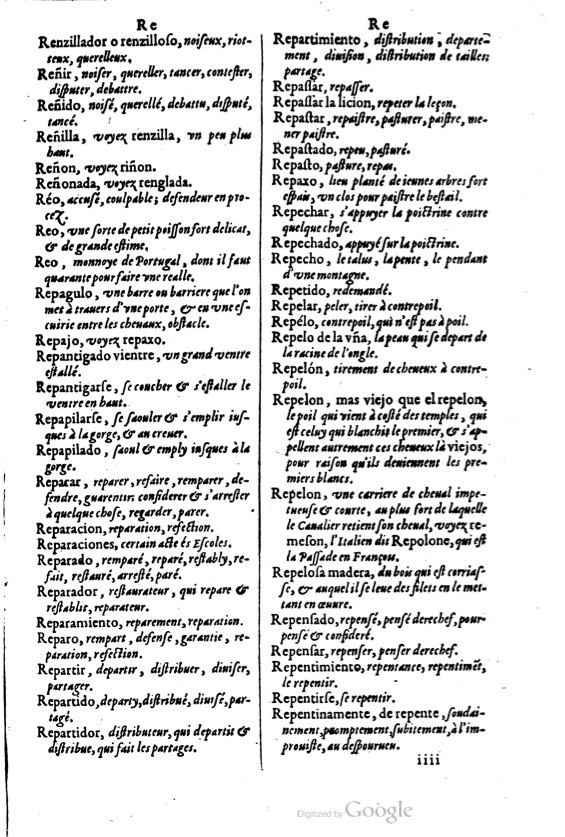 Re
Renzillador o renzilloſo, noiſeux, riot-
teux, querelleux.
Reñir, noiſer, quereller, tancer, conteſter,
diſputer, debattre.
Reñido, noiſé, querellé, debattu, diſputé,
tancé.
Reñilla, voyez renzilla, vn peu plus
haut.
Reñon, voyez riñon.
Reñonada, voyez renglada.
Réo, accuſé, coulpable; defendeur en pro-
cez.
Reo, vne ſorte de petit poiſſon fort delicat,
& de grande eſtime.
Reo, monnoye de Portugal, dont il faut
quarante pour faire vne realle.
Repagulo, vne barre ou barriere que l'on
met à trauers d'vne porte, & en vne eſ-
cuirie entre les cheuaux, obſtacle.
Repajo, voyez repaxo.
Repantigado vientre, vn grand ventre
eſtallé.
Repantigarſe, ſe coucher & s'eſtaller le
ventre en haut.
Repapilarſe, ſe ſaouler & s'emplir iuſ-
ques à la gorge, & au creuer.
Repapilado, ſaoul & emply iuſques à la
gorge.
Reparar, reparer, refaire, remparer, de-
fendre, guarentir. conſiderer & s'arreſter
à quelque choſe, regarder, parer.
Reparacion, reparation, refection.
Reparaciones, certain acte és Eſcoles.
Reparado, remparé, reparé, reſtably, re-
fait, reſtauré, arreſté, paré.
Reparador, reſtaurateur, qui repare &
reſtablit, reparateur.
Reparamiento, reparement, reparation.
Reparo, rempart, defenſe, garantie, re-
paration, refection.
Repartir, departir, diſtribuer, diuiſer,
partager.
Repartido, departy, diſtribué, diuiſé, par-
tagé.
Repartidor, diſtributeur, qui departit &
diſtribue, qui fait les partages.
Re
Repartimiento, diſtribution, departe-
ment, diuiſion, diſtribution de tailles;
partage.
Repaſſar, repaſſer.
Repaſſar la licion, repeter la leçon.
Repaſtar, repaiſtre, paſturer, paiſtre, me-
ner paiſtre.
Repaſtado, repeu, paſturé.
Repaſto, paſture, repas.
Repaxo, lieu planté de ieunes arbres fort
eſpais, vn clos pour paiſtre le beſtail.
Repechar, s'appuyer la poictrine contre
quelque choſe.
Repechado, appuyé ſur la poictrine.
Repecho, le talus, la pente, le pendant
d'vne montagne.
Repetido, redemandé.
Repelar, peler, tirer à contrepoil.
Repélo, contrepoil, qui n'eſt pas à poil.
Repelo de la vña, la peau qui ſe depart de
la racine de l'ongle.
Repelón, tirement de cheueux à contre-
poil.
Repelon, mas viejo que el repelon,
le poil qui vient à coſté des temples, qui
eſt celuy qui blanchit le premier, & s'ap-
pellent autrement ces cheueux là viejos,
pour raiſon qu'ils deuiennent les pre-
miers blancs.
Repelon, vne carriere de cheual impe-
tueuſe & courte, au plus fort de laquelle
le Caualier retient ſon cheual, voyez re-
meſon, l'Italien dit Repolone, qui eſt
la Paſſade en François.
Repeloſa madera, du bois qui eſt corriaſ-
ſe, & auquel il ſe leue des filets en le met-
tant en œuure.
Repenſado, repenſé, penſé derechef, pour-
penſé & conſideré.
Repenſar, repenſer, penſer derechef.
Repentimiento, repentance, repentimēt,
le repentir.
Repentirſe, ſe repentir.
Repentinamente, de repente, ſoudai-
nement, promptement, ſubitement, à l'im-
prouiſte, au deſpourueu.
iiii
Digitized by Google